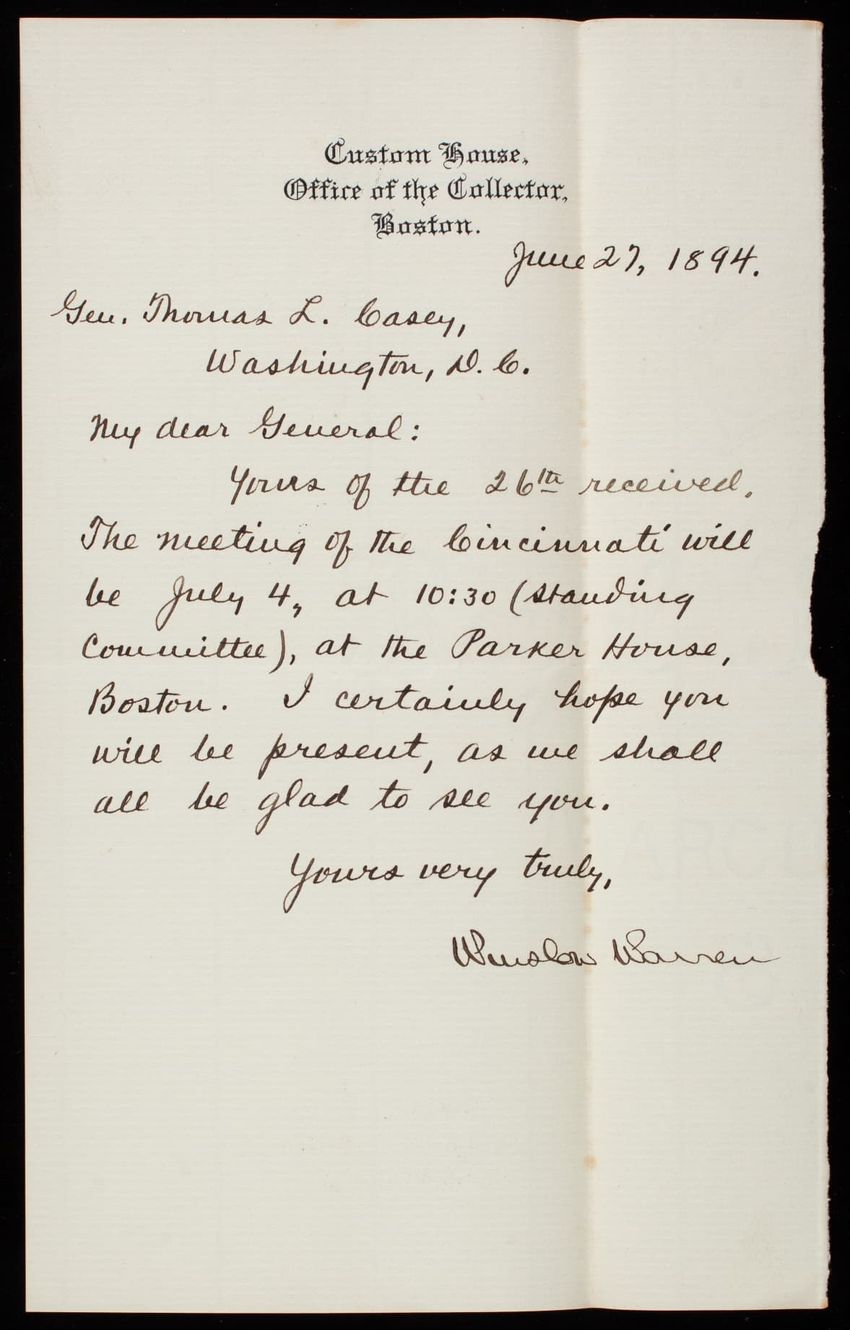 Custom House,
Office of the Collector,
Boston.
June 27, 1894.
Gen. Thomas L. Casey,
Washington, D. C.
My dear General:
Yours of the 26th received.
The meeting of the Cincinnati will
be July 4, at 10:30 (standing
Committee), at the Parker House,
Boston. I certainly hope you
will be present, as we shall
all be glad to see you.
Yours very truly,
Winslow Warren